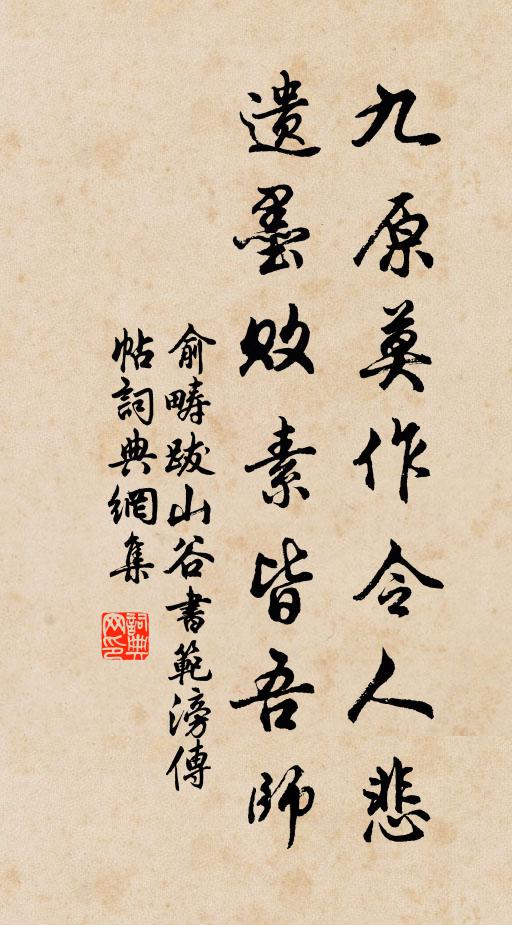 九原莫作令人悲
遺墨敗素皆吾師
俞疇跋山谷書範滂傳
帖詞典網集
詞典网印